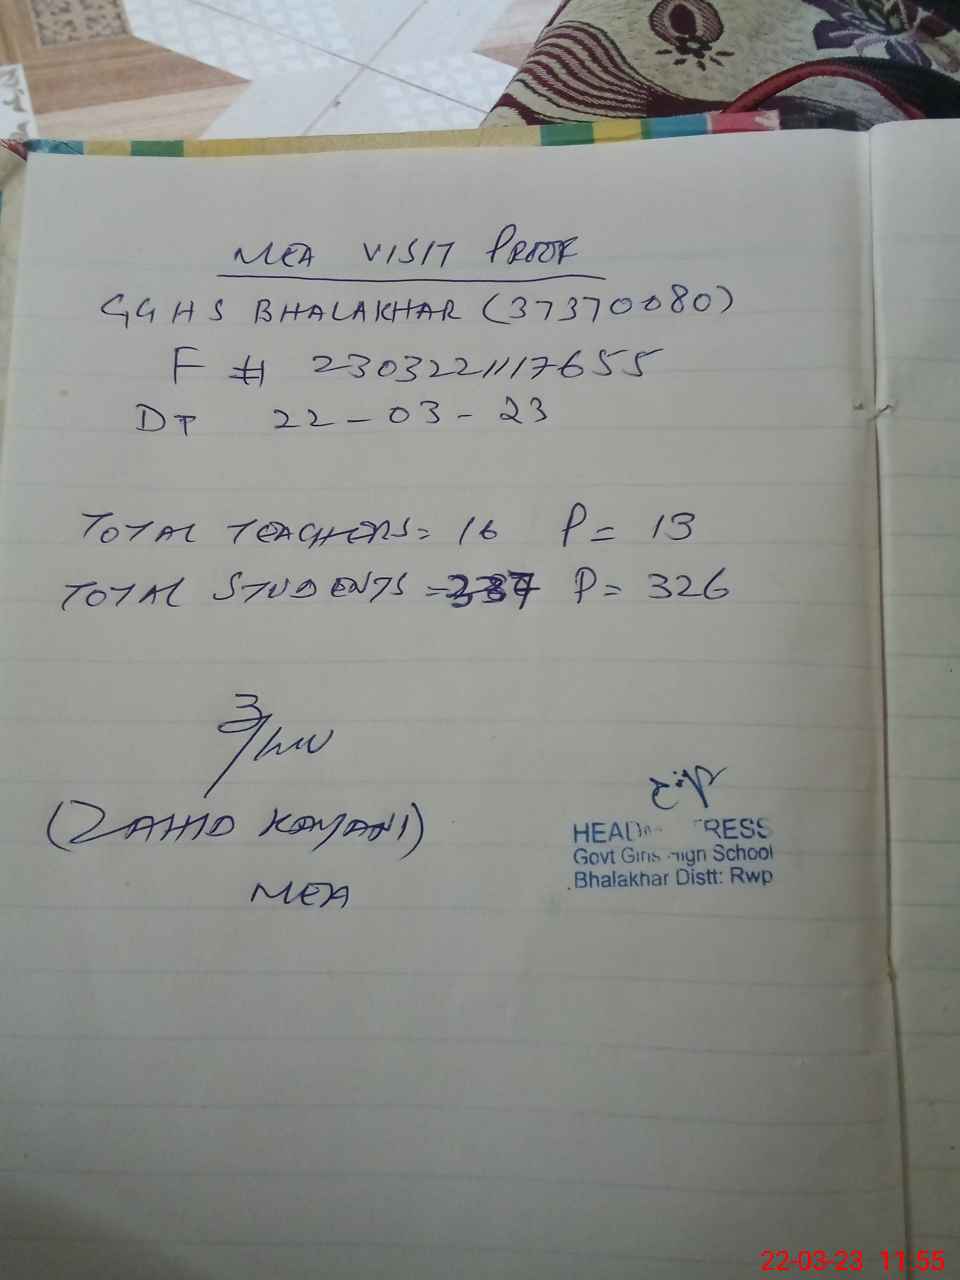 MEA VISIT PROOF
GGHS BHALAKHAR (37370080)
F # 2303221117655
DT 22-03-23
TOTAL TEACHERS= 16 P= 13
TOTAL STUDENTS = P= 326
(ZAHID KAYANI)
MEA
Govt Girls High School
Bhalakhar Distt: Rwp
22-03-23 11:55